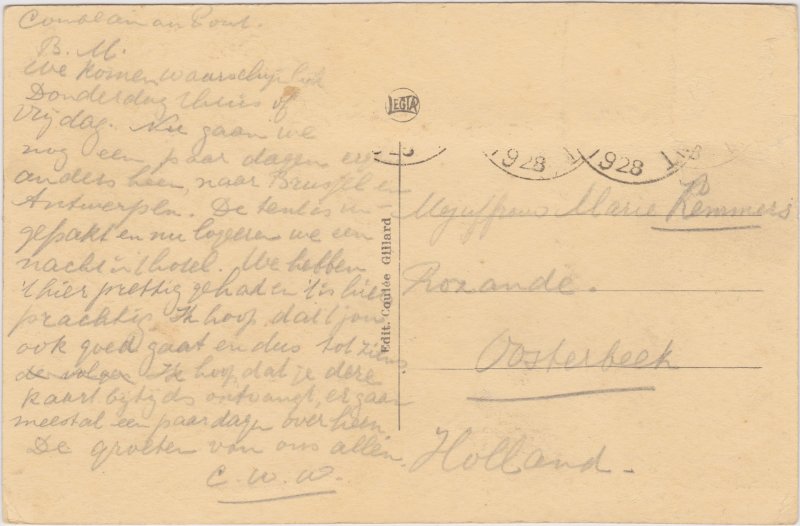 Comblain au Pont.
B. M.
We komen waarschijnlijk
Donderdag thuis of
Vrijdag. Nu gaan we
nog een paar dagen er
anders heen, naar Brussel en
Antwerpen. De tent is in-
gepakt en nu logeren we een
nacht in 't hotel. We hebben
't hier prettig gehad en 't is hier
prachtig. Ik hoop, dat 't jou
ook goed gaat en dus tot ziens
de volgen Ik hoop, dat je deze
kaart bijtijds ontvangt, er gaan
meestal een paar dagen over heen
De groeten van ons allen.
C. W. W.
LEGIA
1928 1928 1
Edit. Coulée Gillard
Mejuffrouw Marie Remmers
Rozande.
Oosterbeek
Holland.